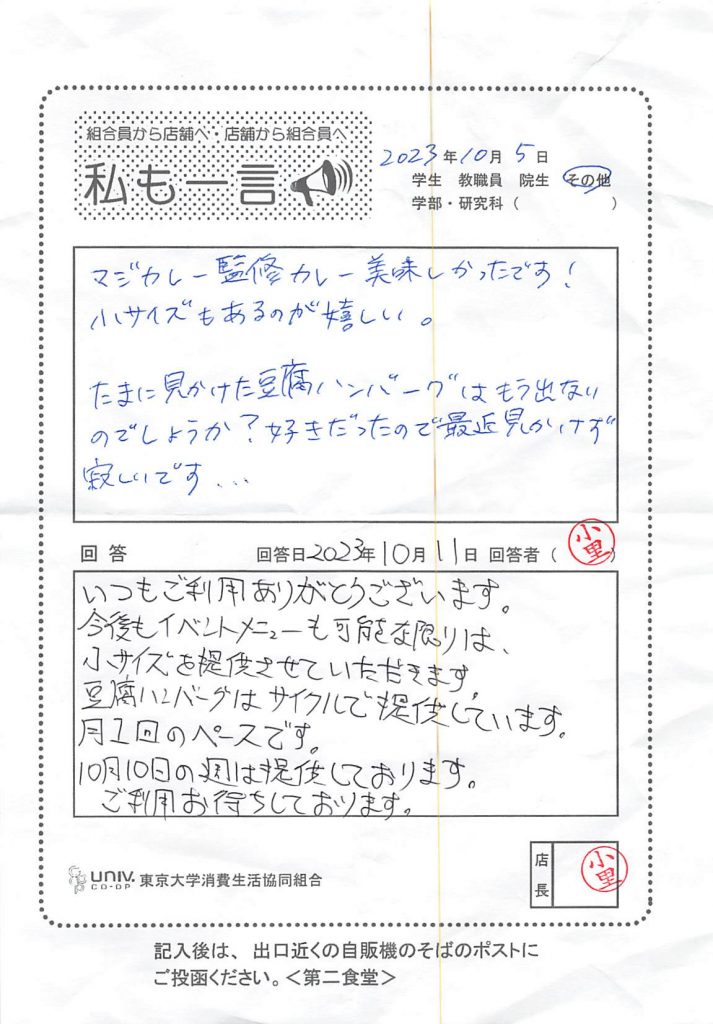 組合員から店舗へ・店舗から組合員へ
私も一言
2023年10月5日
学生 教職員 院生 その他
学部・研究科（ ）
マジカレー監修カレー美味しかったです！
小サイズもあるのが嬉しい。
たまに見かけた豆腐ハンバーグはもう出ない
のでしょうか？好きだったので最近見かけず
寂しいです...
回答 回答日2023年10月11日 回答者（小里）
いつもご利用ありがとうございます。
今後もイベントメニューも可能な限りは、
小サイズを提供させていただきます。
豆腐ハンバーグはサイクルで提供しています。
月1回のペースです。
10月10日の週は提供しております。
ご利用お待ちしております。
UNIV. CO-OP 東京大学消費生活協同組合
店長 小里
記入後は、出口近くの自販機のそばのポストに
ご投函ください。＜第二食堂＞